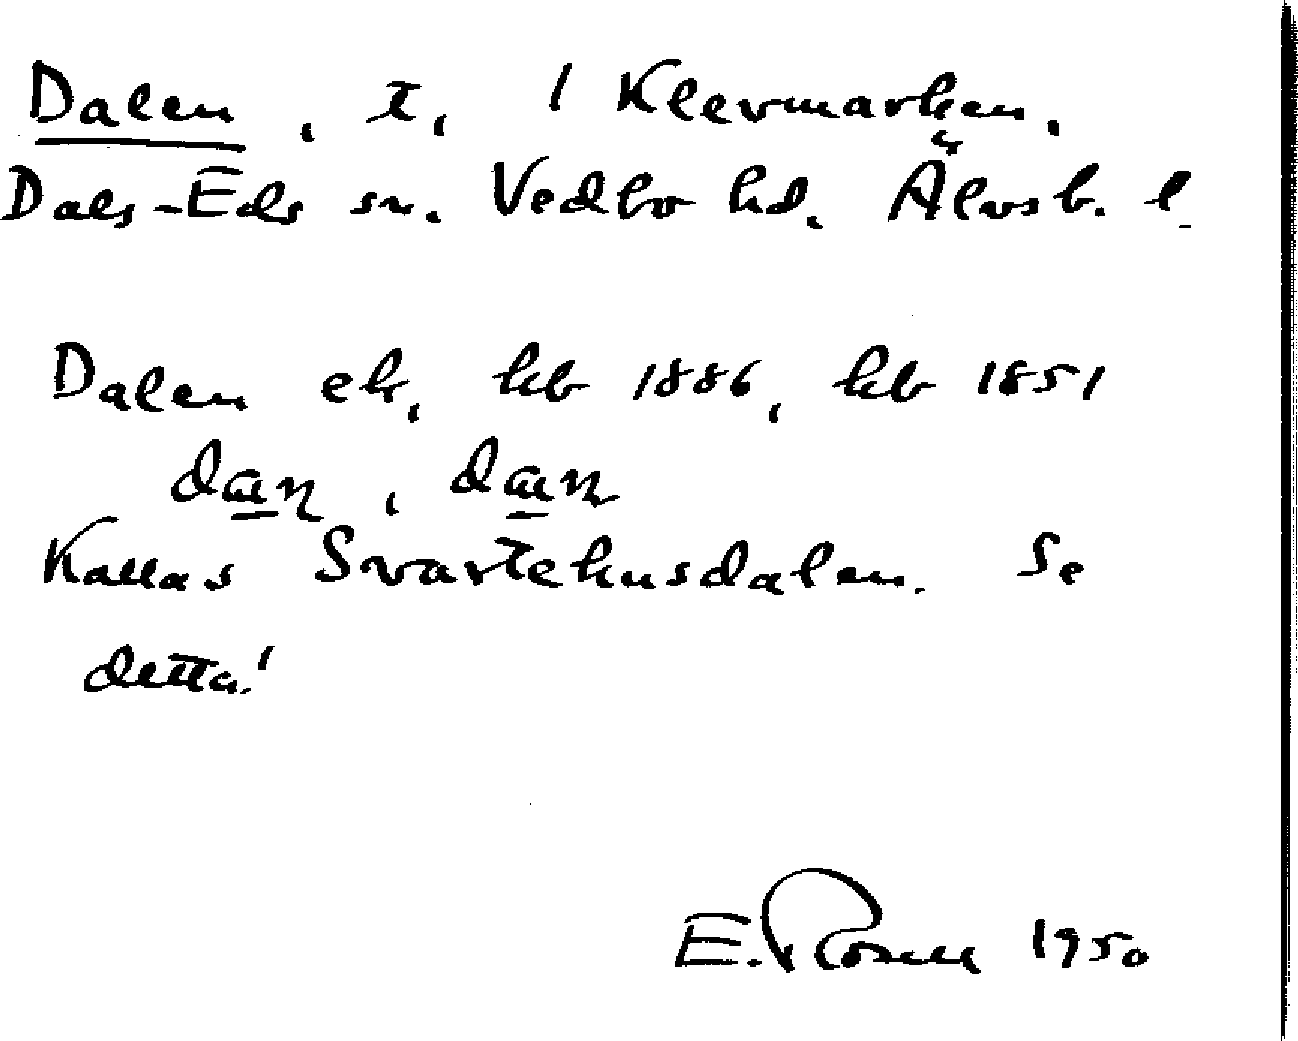 Dalen, t, / Klevmarken,
Dals-Eds sn. Vedbo hd. Älvsb. l.
Dalen ek, hb 1886, kb 1851
Kallas Svartekusdalen. Se
detta!
E. Rosell 1950